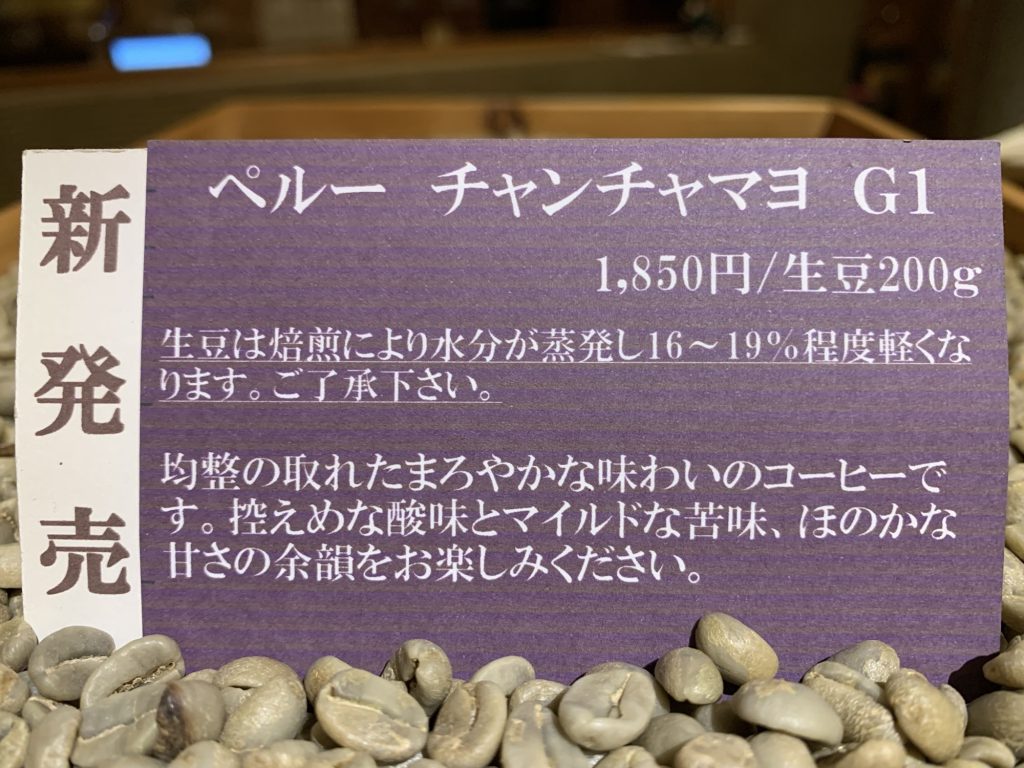 新発売
ペルー チャンチャマヨ G1
1,850円/生豆200g
生豆は焙煎により水分が蒸発し16～19%程度軽くな
ります。ご了承下さい。
均整の取れたまろやかな味わいのコーヒーで
す。控えめな酸味とマイルドな苦味、ほのかな
甘さの余韻をお楽しみください。